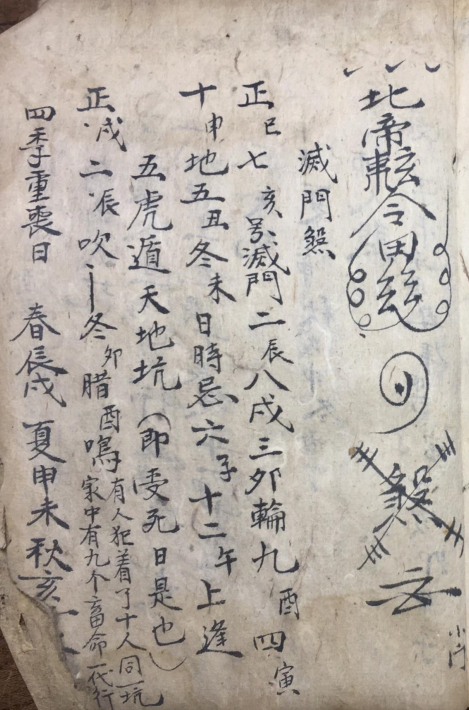 北帝敕令
煞
滅門煞
正巳七亥另滅門二辰八戌三卯輪九酉四寅
十申地五丑冬未日時忌六子十二午上逢
五虎遁天地坑(即受死日是也)
正戌二辰吹冬卯腊酉鳴有人犯着了十人同一坑
家中有九个畜命一代行
四季重喪日 春辰戌 夏申未 秋亥